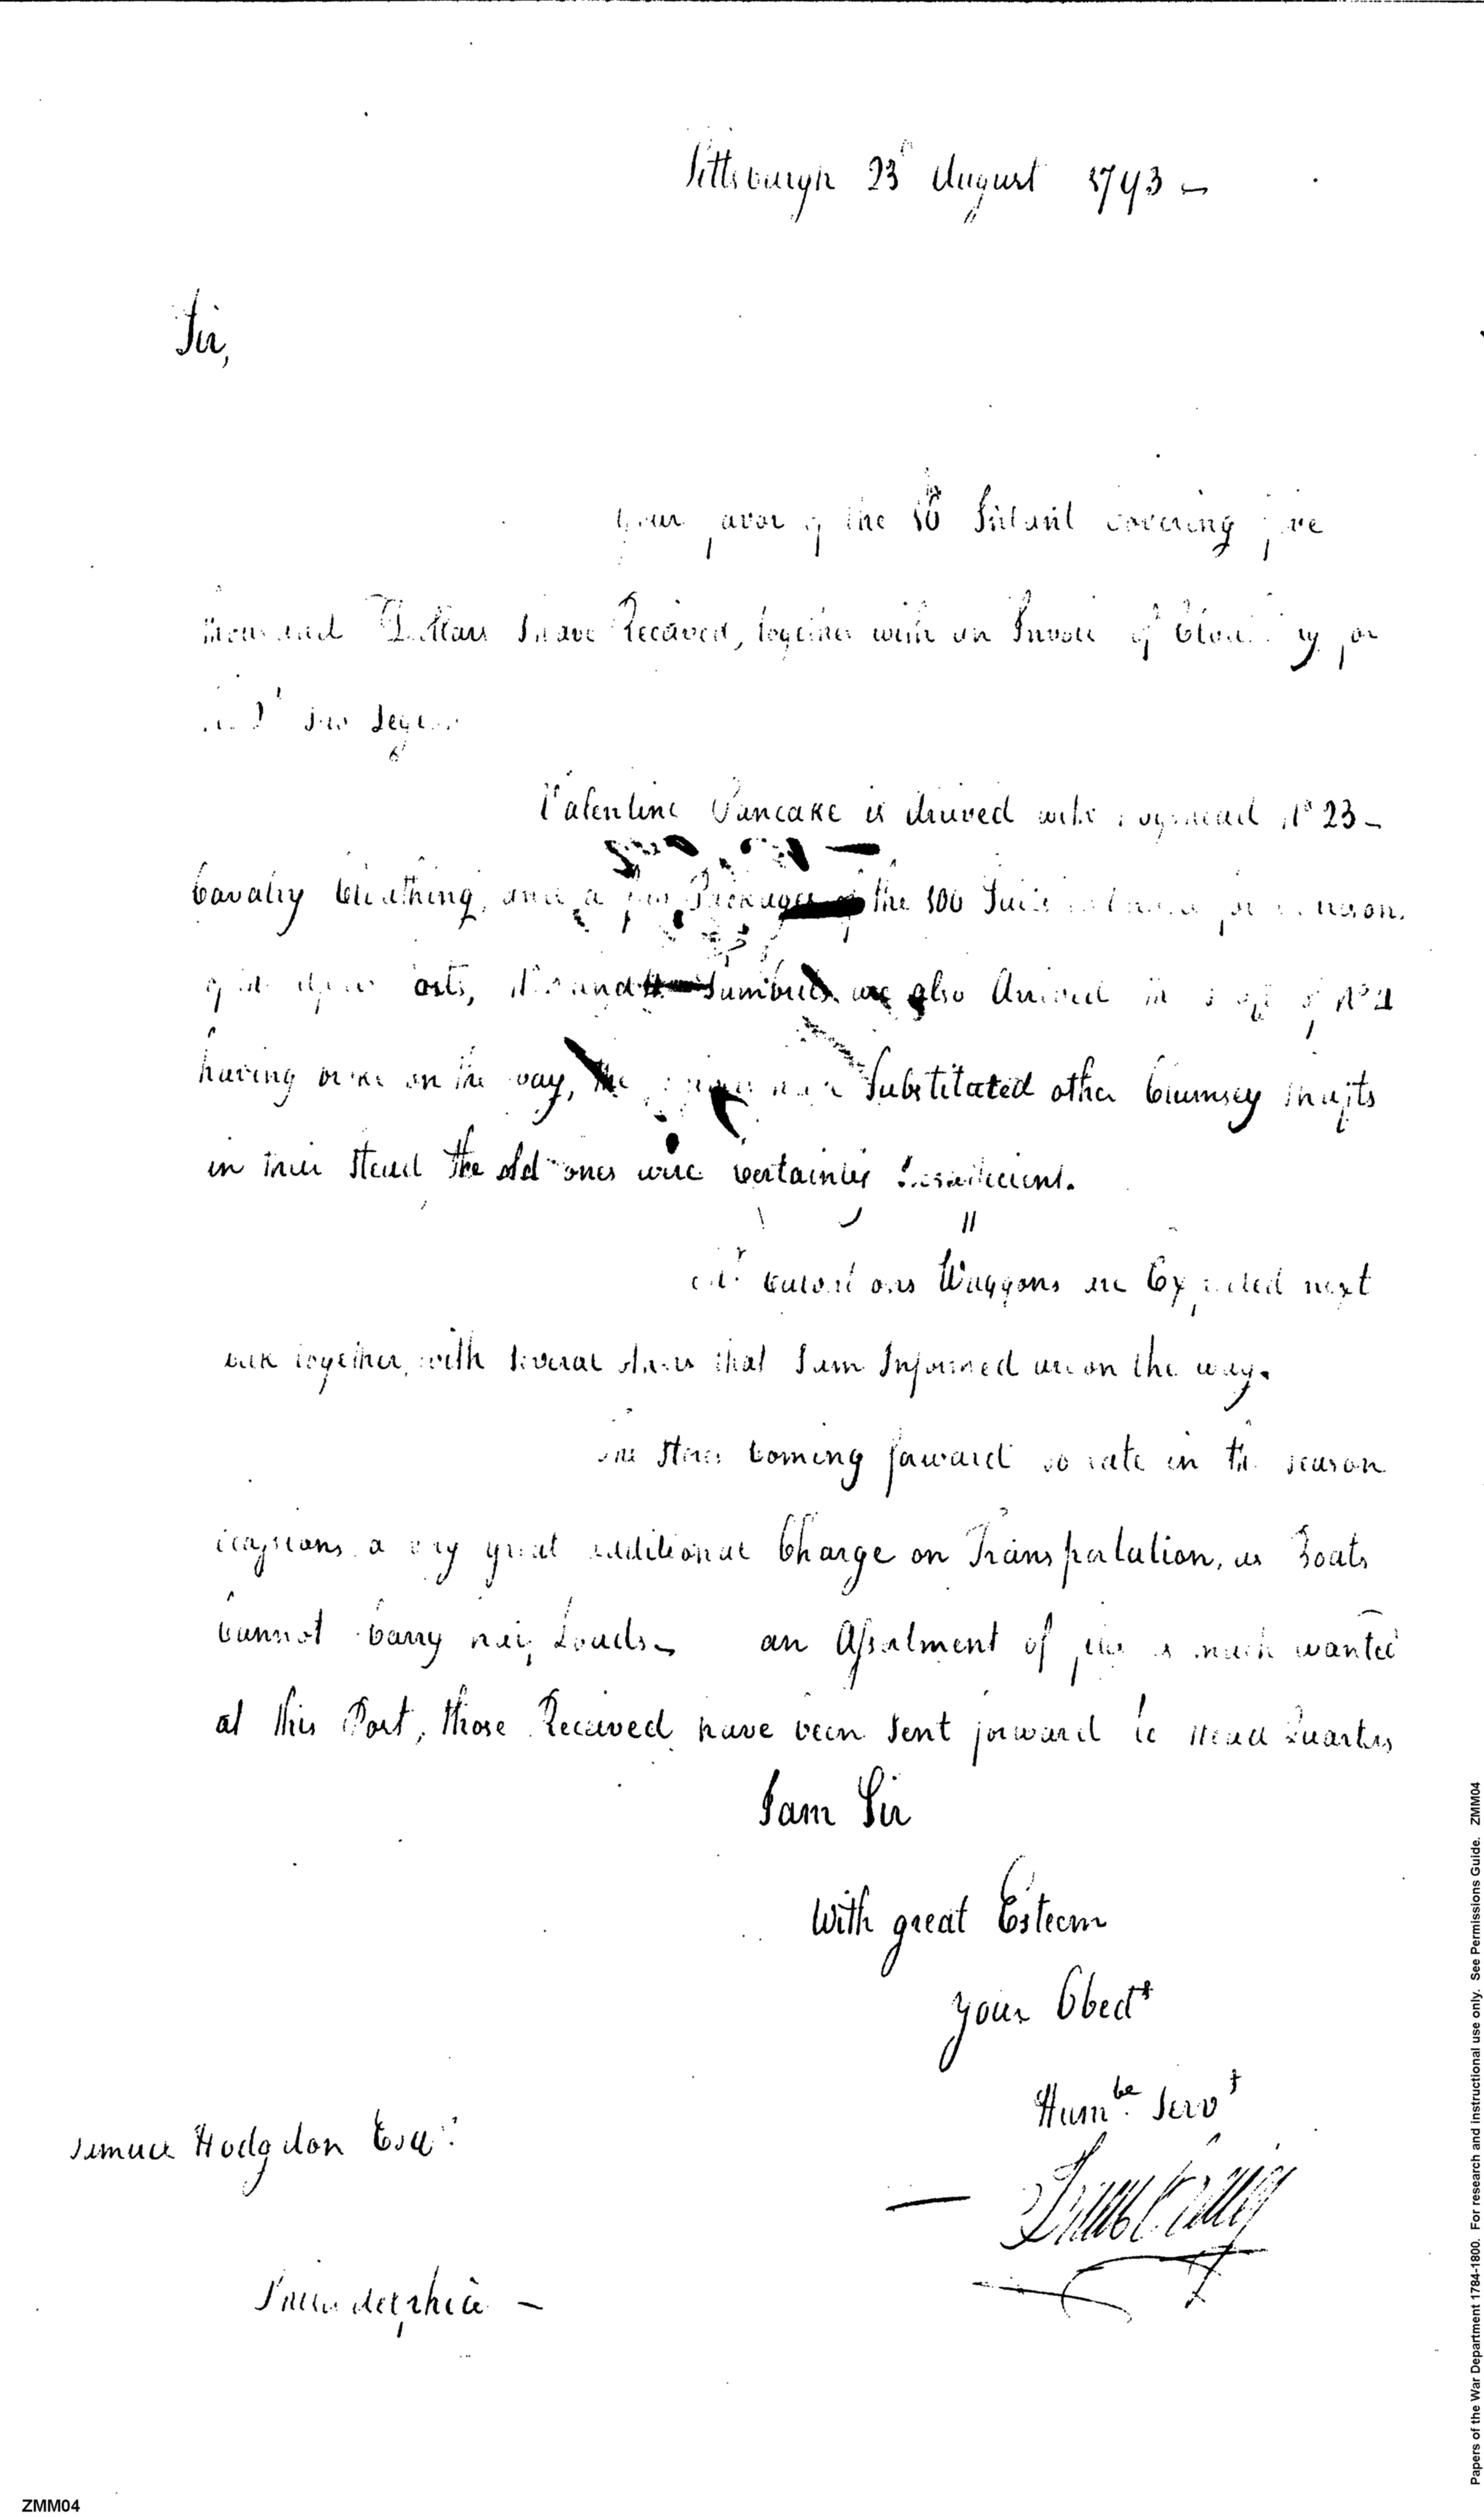 Pittsburgh 23d August 1793 –
Sir,
your favor of the 16th Instant covering five
thousand Dollars I have Received, together with an Invoice of Cloathing for
the Legion
Valentine Pancake is Arrived with Hogshead No 23 –
Cavalry Cloathing, and a few Packages of the 100 Suits
Posts, and Tumbrels are also Arrived the of No 4
having broke on the way, the have Substituted other Clumsey Shafts
in their Stead the old ones were Certainly Insufficient.
Mr Waggons are Expected next
week together, with several others that I am Informed are on the way.
The Stores Coming forward so late in the season
occasions a very great additional Charge on Transportation, as Boats
Cannot Carry heavy Loads – an Assortment of is much wanted
at this Post, those Received have been Sent forward to Head Quarters
I am Sir
With great Esteem
your Obedt
Humble Servt
Isaac Craig
Samuel Hodgdon Esqr
Philadelphia –
Papers of the War Department 1784-1800. For research and instructional use only. See Permissions Guide. ZMM04
ZMM04